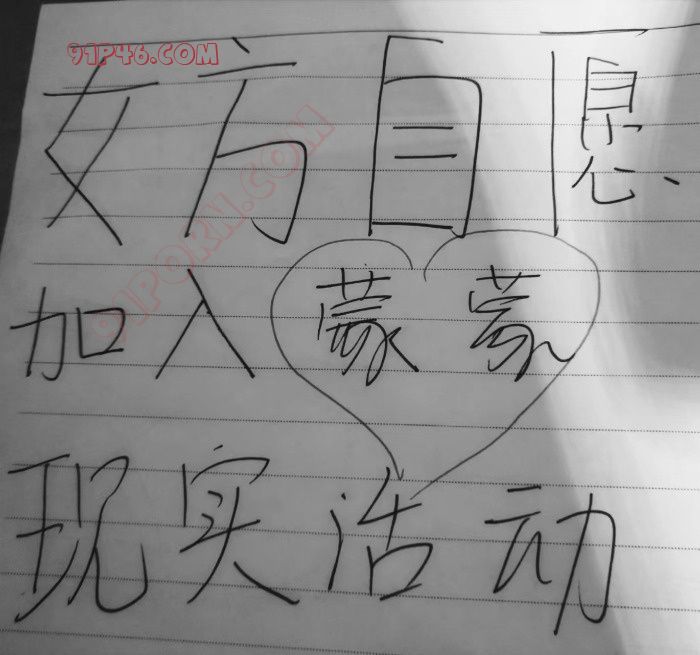 91P46.COM
女方自愿
91PORN.COM
加入蒙蒙
现实活动